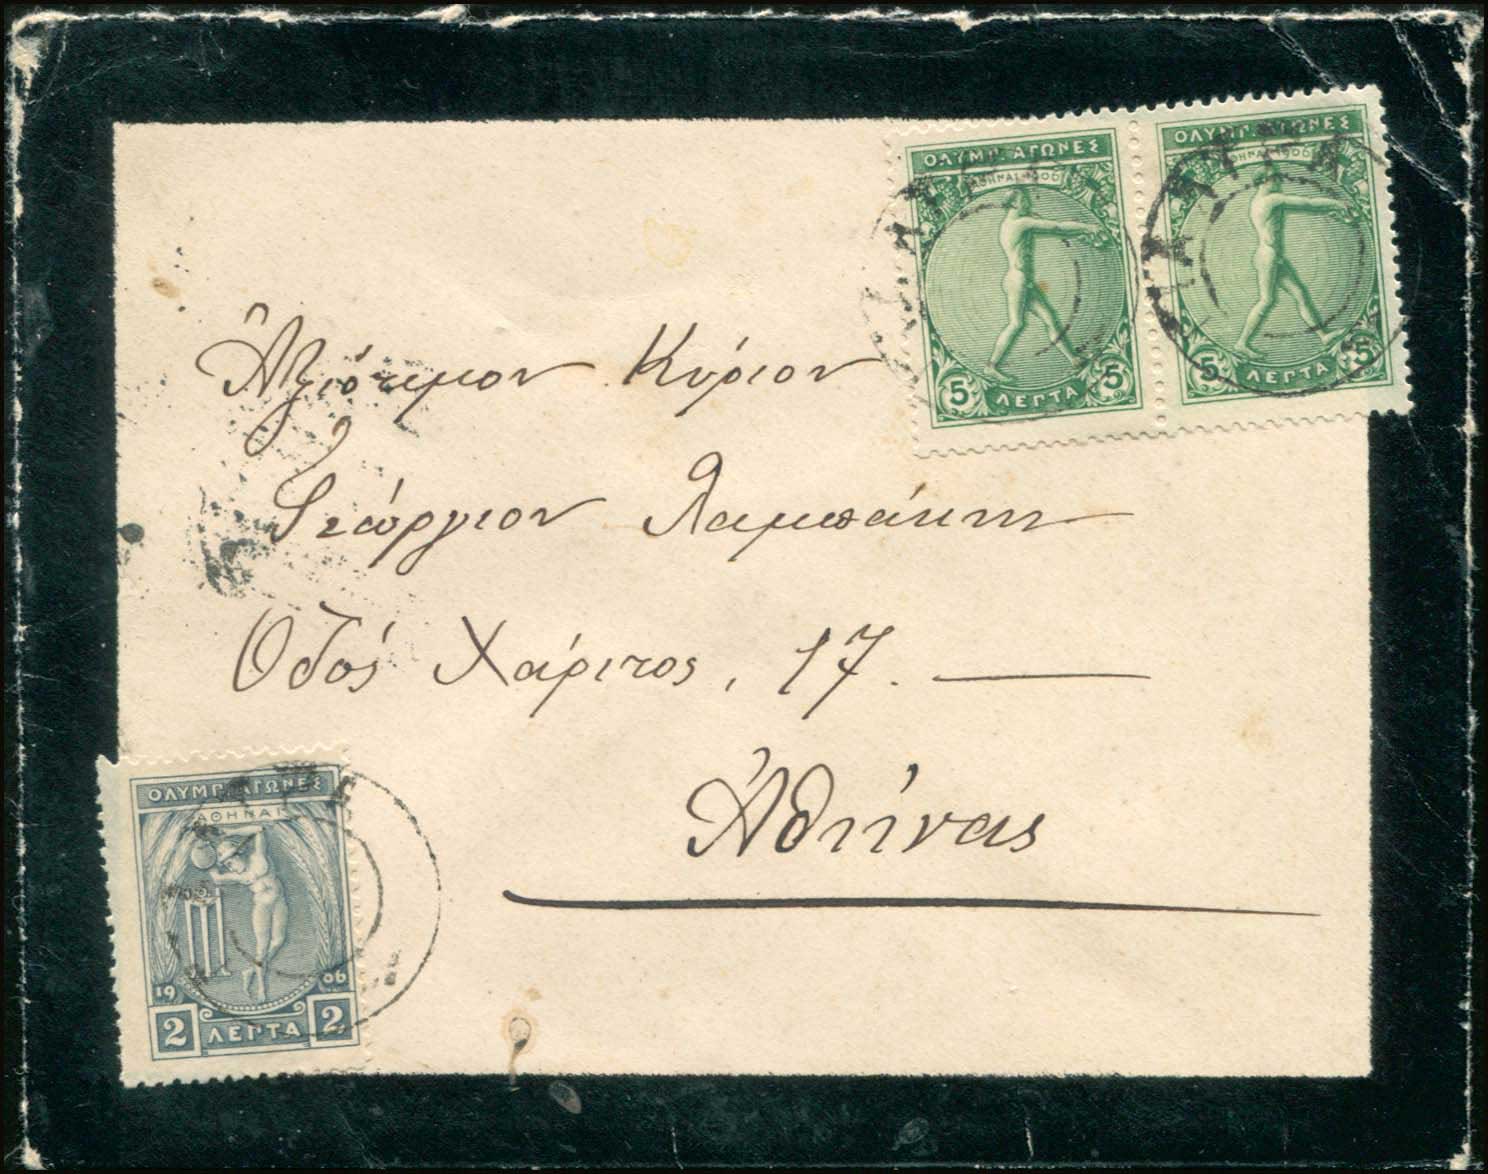 ΟΛΥΜΠ. ΑΓΩΝΕΣ
ΑΘΗΝΑΙ 1906
5 ΛΕΠΤΑ 5
ΟΛΥΜΠ. ΑΓΩΝΕΣ
ΑΘΗΝΑΙ 1906
5 ΛΕΠΤΑ 5
Ἀξιότιμον Κύριον
Γεώργιον Λαμπάκην
Ὁδός Χάριτος, 17.
Ἀθήνας
ΟΛΥΜΠ. ΑΓΩΝΕΣ
ΑΘΗΝΑΙ
19 06
2 ΛΕΠΤΑ 2